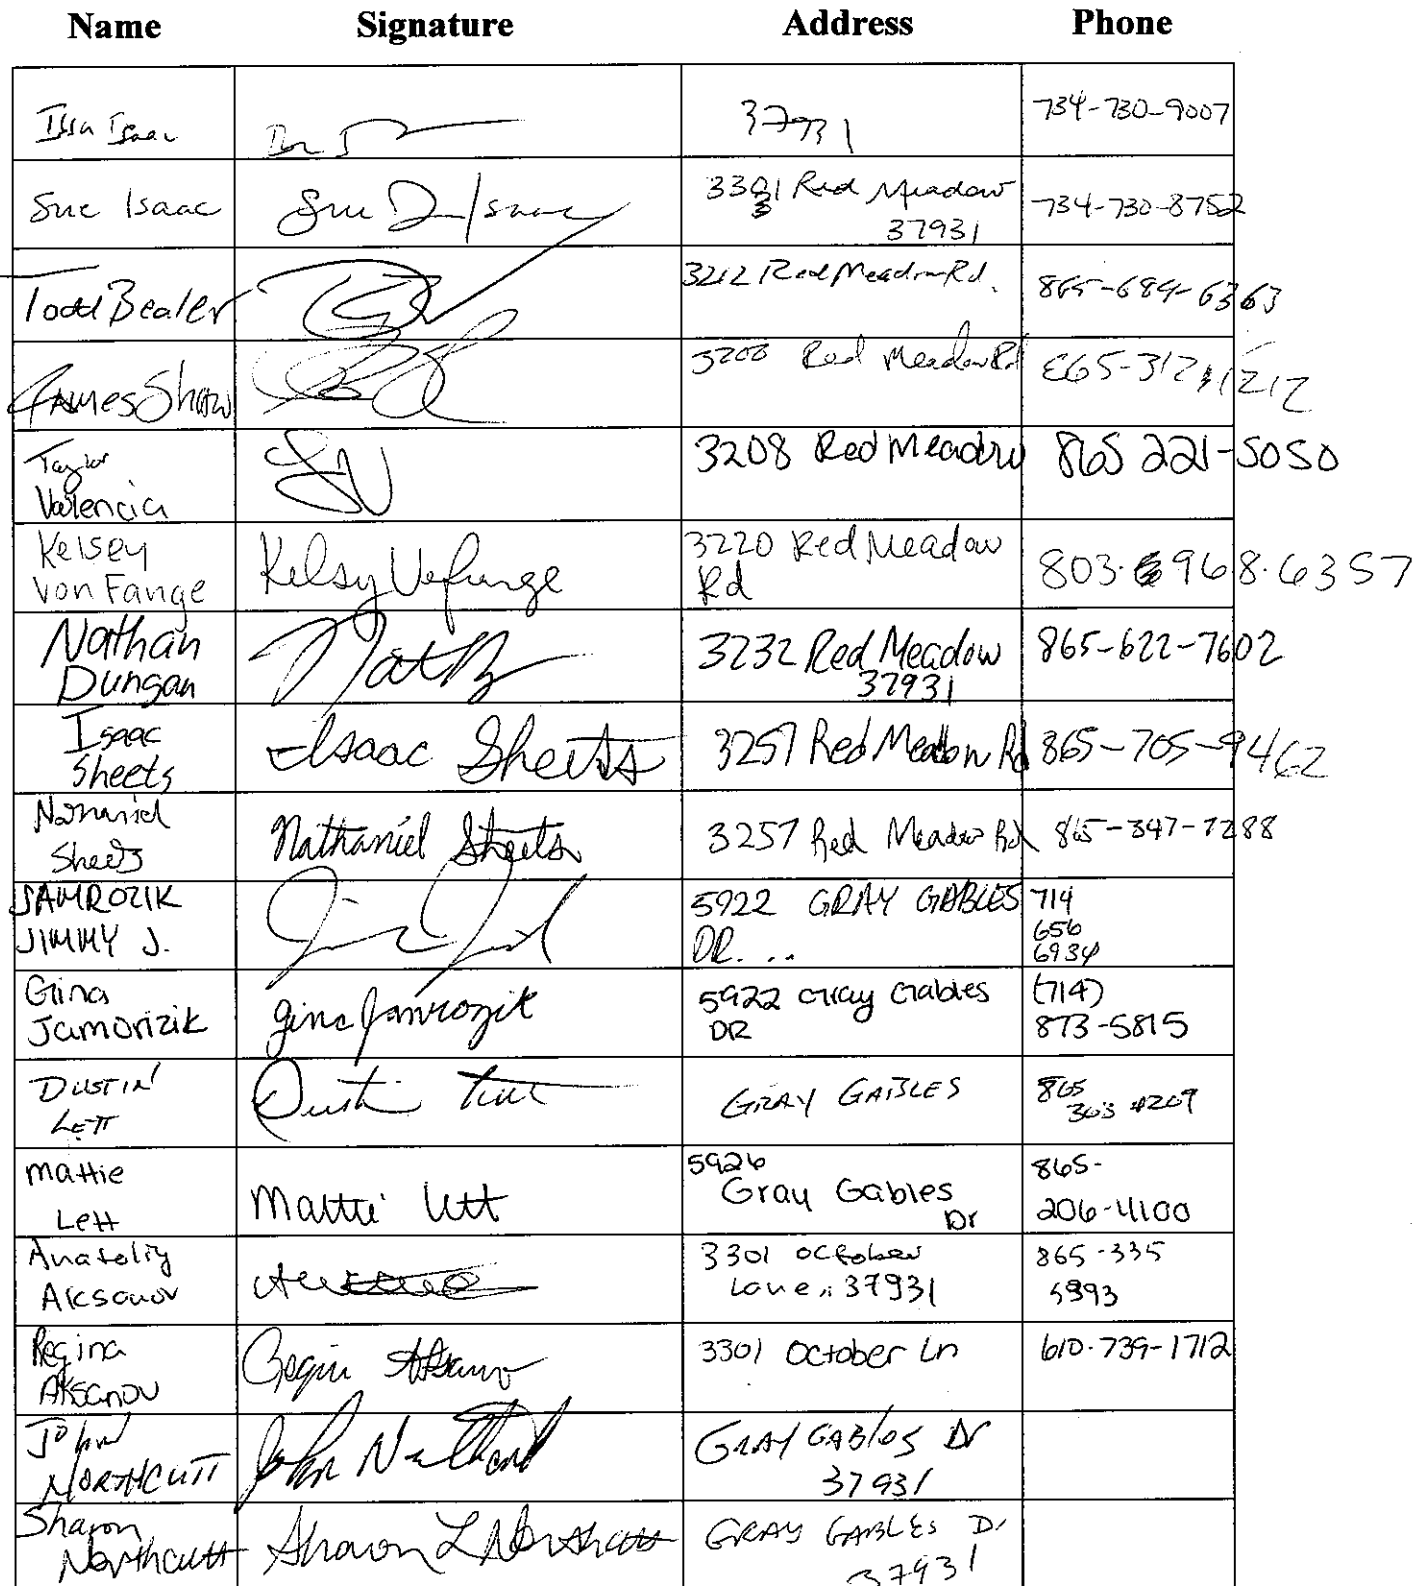 Name Signature Address Phone
Issa Isaac 37931 734-730-9007
Sue Isaac Sue D Isaac 3301 Red Meadow 734-730-8752
37931
Todd Bealer 3212 Red Meadow Rd. 865-684-6363
James Shaw 3200 Red Meadow Rd 865-312-1212
Taylor
Valencia 3208 Red Meadow 865 221-5050
Kelsey
Von Fange Kelsy Vofange 3220 Red Meadow
Rd 803. 968.6357
Nathan
Dungan 3232 Red Meadow
37931 865-622-7602
Isaac
Sheets Isaac Sheets 3257 Red Meadow Rd 865-705-9462
Nathaniel
Sheets Nathaniel Sheets 3257 Red Meadow Rd 865-347-7288
JAMROZIK
JIMMY J. 5922 GRAY GABLES
DR. .. 714
656
6934
Gina
Jamorizik Gina Jamrozik 5922 Gray Gables
DR (714)
873-5815
DUSTIN
LETT Dustin GRAY GABLES 865
363 4209
Mattie
Lett Mattie Lett 5926
Gray Gables
Dr 865-
206-4100
Anatoliy
Aksanov 3301 October
Lane, 37931 865-335
5993
Regina
Aksanov 3301 October Ln 610-739-1712
John
NORTHCUTT John Northcutt GRAY GABLES Dr
37931
Sharon
Northcutt Sharon L Northcutt GRAY GABLES Dr
37931